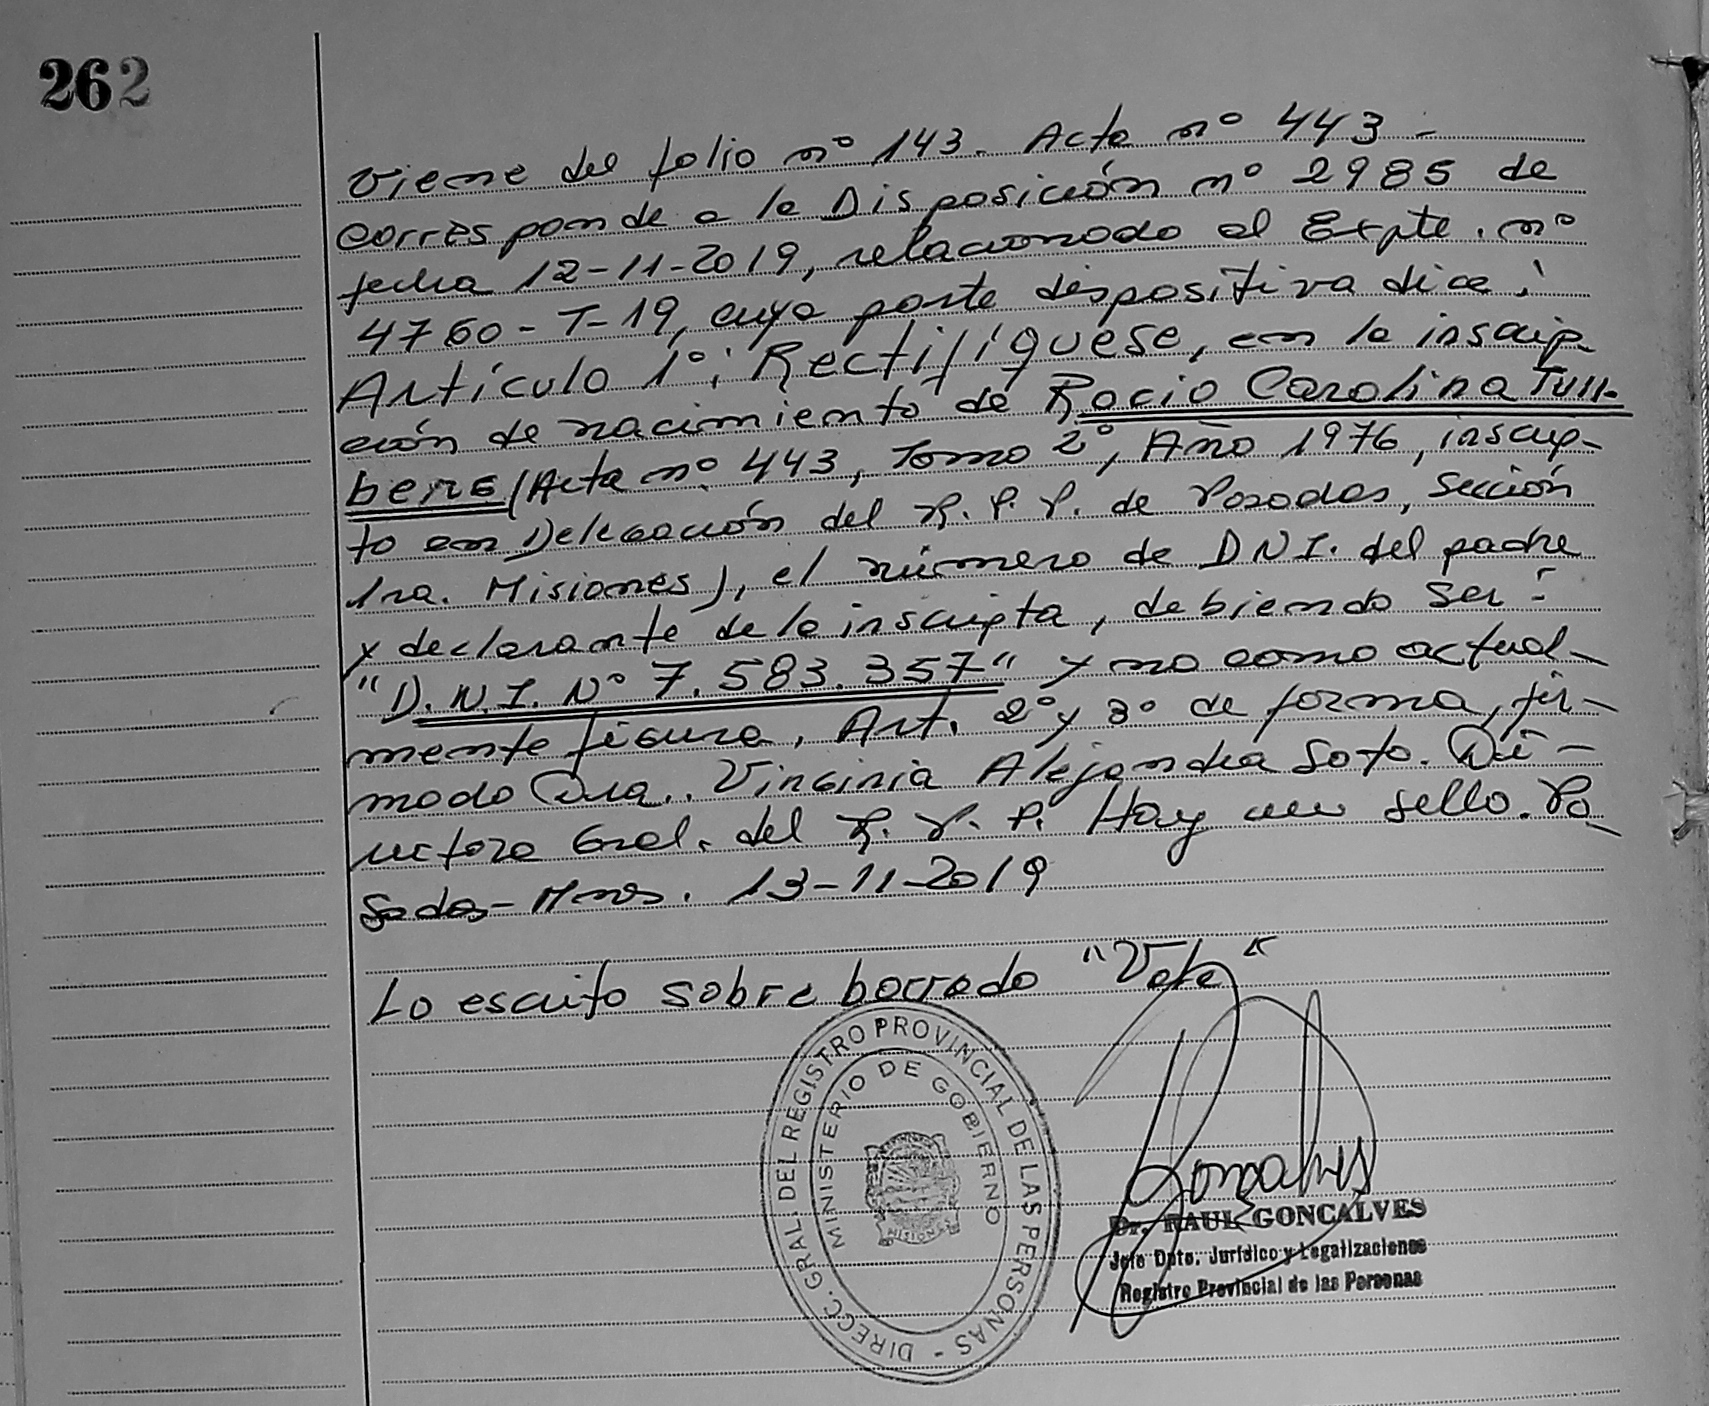 262
Viene del folio nº 143. Acta nº 443 -
Corresponde a la Disposición nº 2985 de
fecha 12-11-2019, relacionado al Expte. nº
4760-T-19, cuya parte dispositiva dice:
Artículo 1º: Rectifíquese, en la inscrip-
ción de nacimiento de Rocio Carolina Tull-
bere (Acta nº 443, Tomo 2º, Año 1976, inscrip-
to en Delegación del R. P. P. de Posadas, Sección
1ra. Misiones), el número de DNI. del padre
y declarante de la inscripta, debiendo ser:
"D.N.I. Nº 7.583.357" y no como actual-
mente figura, Art. 2º y 3º de forma, fir-
mado Dra. Virginia Alejandra Soto. Di-
rectora Gral. del R. P. P. Hay un sello. Po-
sadas - Mnes. 13-11-2019
Lo escrito sobre borrado "Vale"
DIRECC. GRAL. DEL REGISTRO PROVINCIAL DE LAS PERSONAS -
MINISTERIO DE GOBIERNO
MISIONES
Goncalves
Dr. RAUL GONCALVES
Jefe Dpto. Jurídico y Legalizaciones
Registro Provincial de las Personas